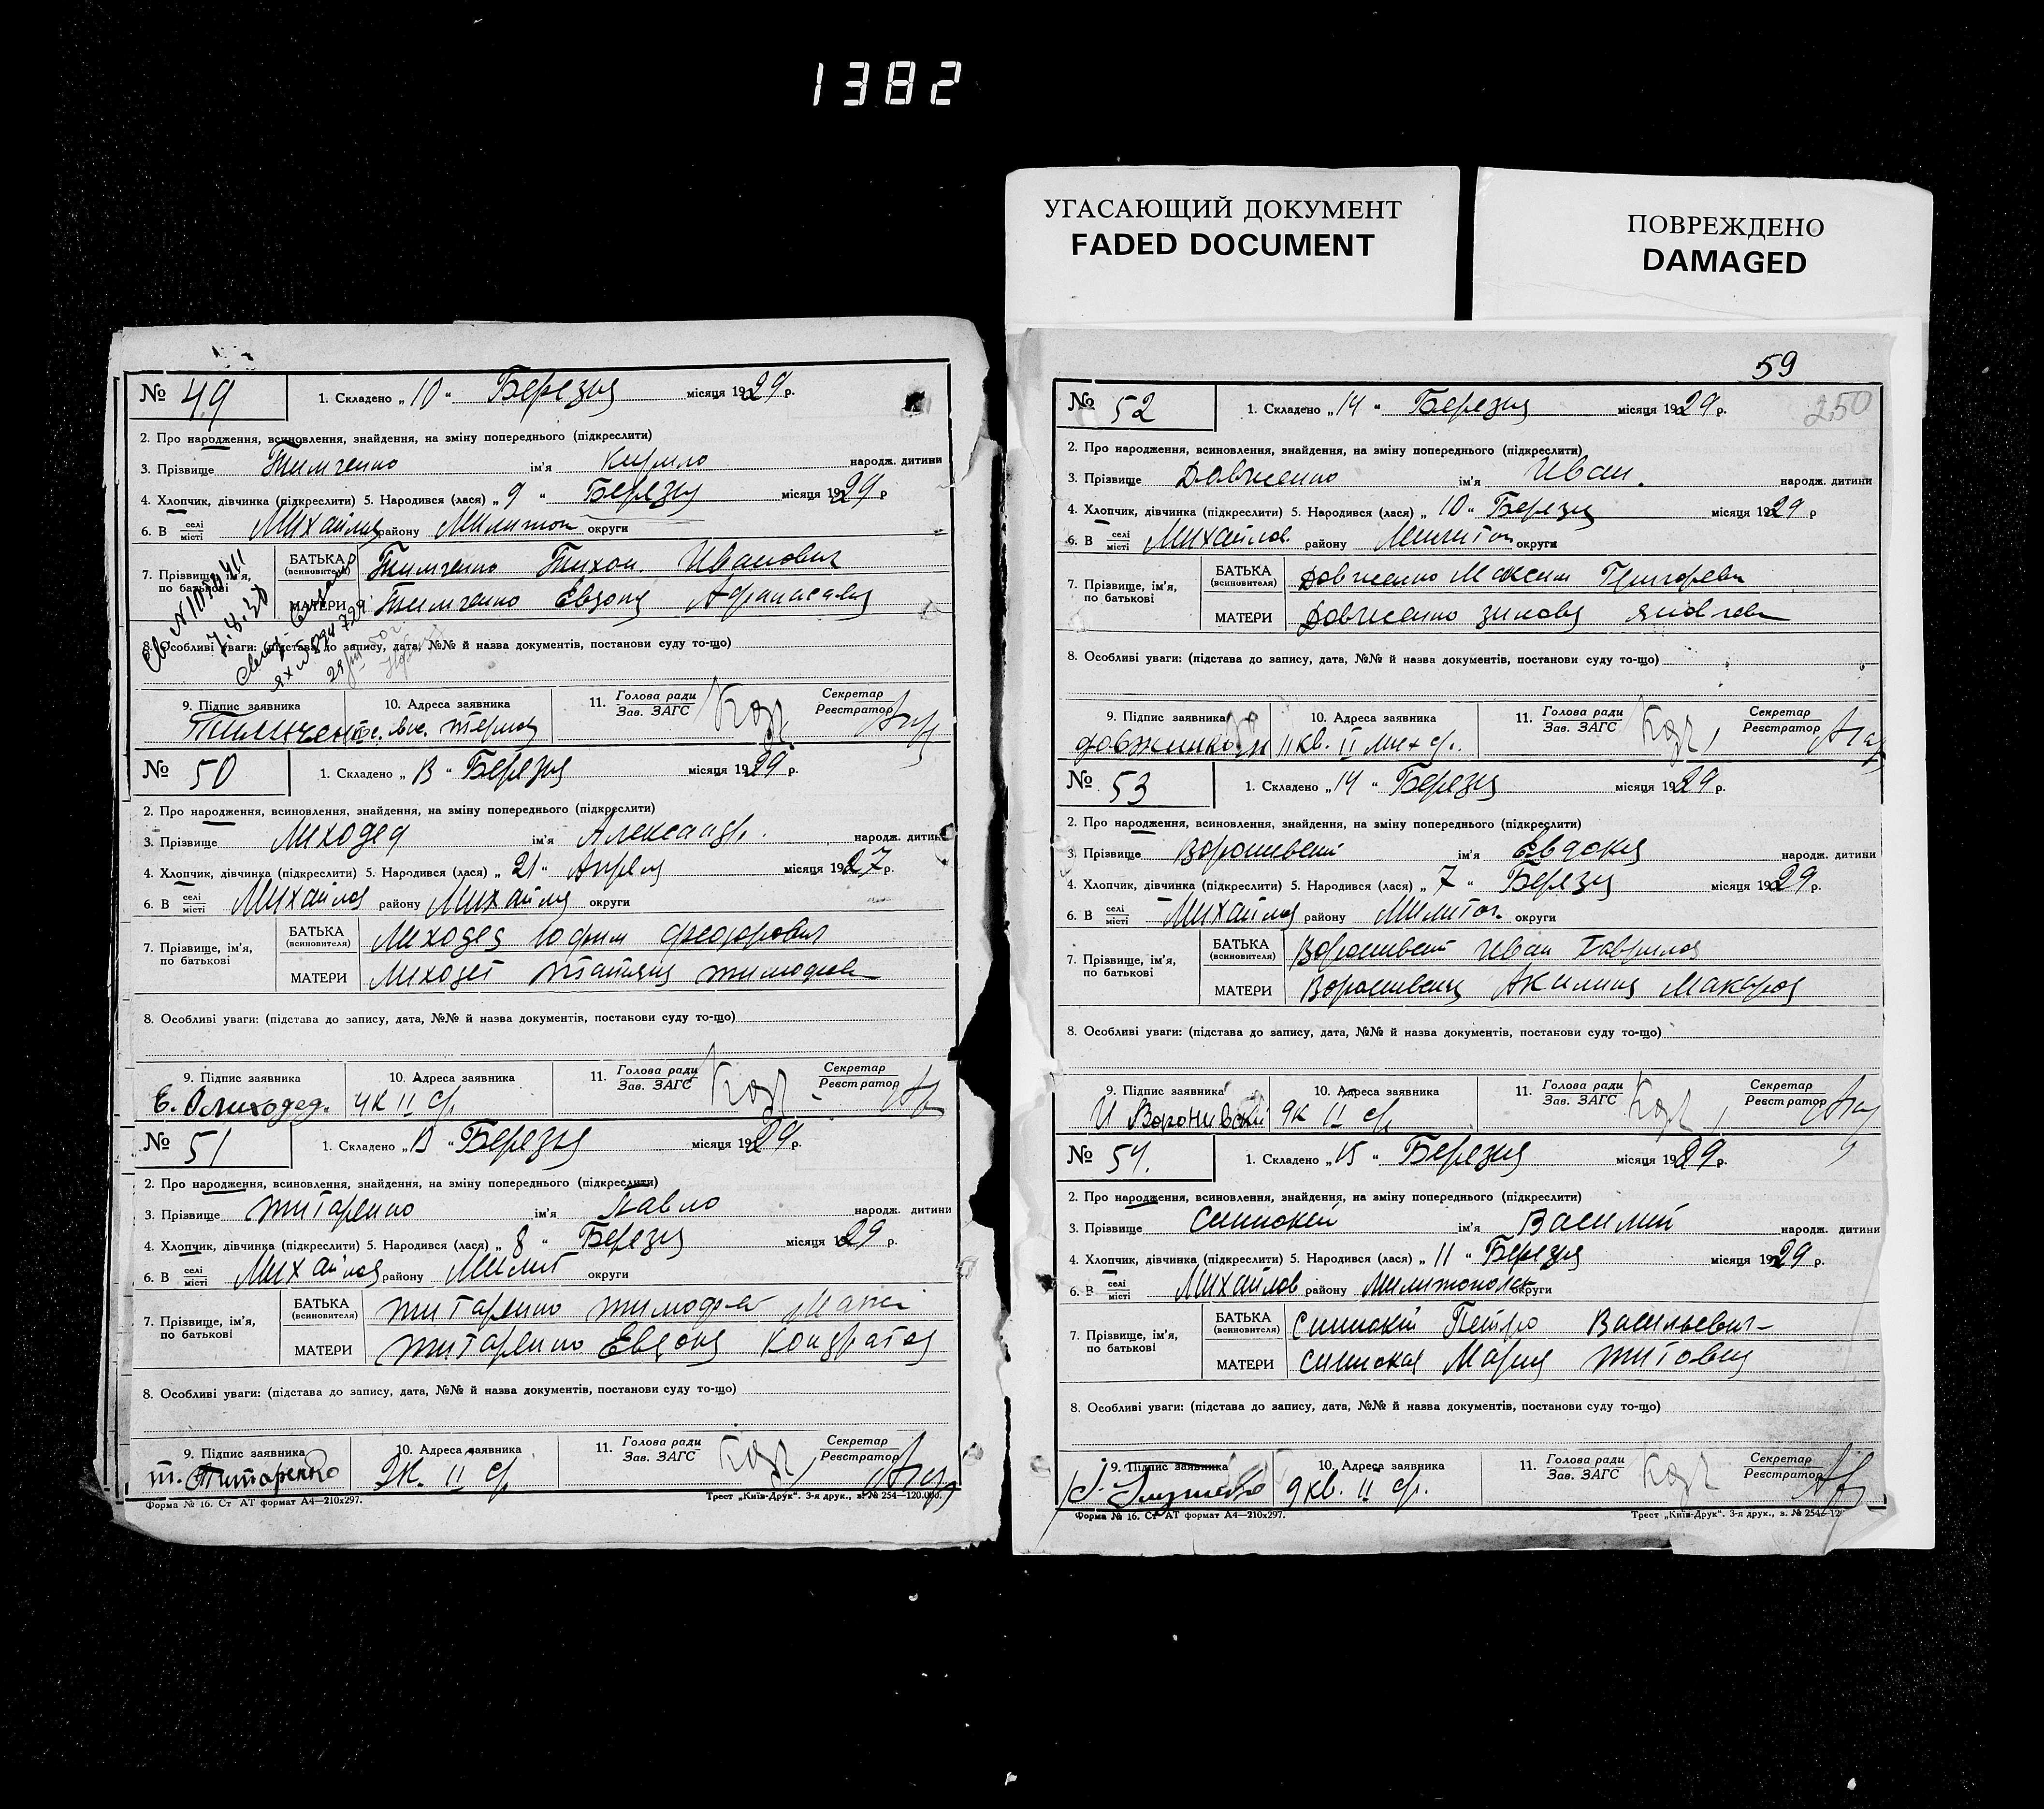 1382
УГАСАЮЩИЙ ДОКУМЕНТ
FADED DOCUMENT
ПОВРЕЖДЕНО
DAMAGED
№ 49
1. Складено „ 10 “ Березня місяця 1929 р.
2. Про народження, всиновлення, знайдення, на зміну попереднього (підкреслити)
3. Прізвище Тимченко ім'я Кирило народж. дитини
4. Хлопчик, дівчинка (підкреслити) 5. Народився (лася) „ 9 “ Березня місяця 1929 р
6. В селі місті Михайлов району Милитоп округи
7. Прізвище, ім'я, по батькові
БАТЬКА (всиновителя) Тимченко Тихон Иванович
МАТЕРИ Тимченко Евдокия Афанасавна
8. Особливі уваги: (підстава до запису, дата, №№ й назва документів, постанови суду то-що)
9. Підпис заявника 10. Адреса заявника 11. Голова ради Зав. ЗАГС Секретар Реєстратор
Тимченко
№ 50
1. Складено „ 13 “ Березня місяця 1929 р.
2. Про народження, всиновлення, знайдення, на зміну попереднього (підкреслити)
3. Прізвище Лиходед ім'я Александр. народж. дитини
4. Хлопчик, дівчинка (підкреслити) 5. Народився (лася) „ 21 “ Апреля місяця 1927 р.
6. В селі місті Михайлов району Михайлов округи
7. Прізвище, ім'я, по батькові
БАТЬКА (всиновителя) Лиходед Юфим Феодорович
МАТЕРИ Лиходед Татьяна Тимофеев
8. Особливі уваги: (підстава до запису, дата, №№ й назва документів, постанови суду то-що)
9. Підпис заявника 10. Адреса заявника 11. Голова ради Зав. ЗАГС Секретар Реєстратор
4к II ср.
№ 51
1. Складено „ 13 “ Березня місяця 1929 р.
2. Про народження, всиновлення, знайдення, на зміну попереднього (підкреслити)
3. Прізвище Титаренко ім'я Павло народж. дитини
4. Хлопчик, дівчинка (підкреслити) 5. Народився (лася) „ 8 “ Березня місяця 1929 р.
6. В селі місті Михайлов району Милит округи
7. Прізвище, ім'я, по батькові
БАТЬКА (всиновителя) Титаренко Тимофей
МАТЕРИ Титаренко Евдокия Кондратов
8. Особливі уваги: (підстава до запису, дата, №№ й назва документів, постанови суду то-що)
9. Підпис заявника 10. Адреса заявника 11. Голова ради Зав. ЗАГС Секретар Реєстратор
т. Титаренко II ср.
Форма № 16. Ст АТ формат А4—210х297. Трест „Київ-Друк“. 3-я друк., з. № 254—120.000.
59
250
№ 52
1. Складено „ 14 “ Березня місяця 1929 р.
2. Про народження, всиновлення, знайдення, на зміну попереднього (підкреслити)
3. Прізвище Довженко ім'я Иван. народж. дитини
4. Хлопчик, дівчинка (підкреслити) 5. Народився (лася) „ 10 “ Березня місяця 1929 р
6. В селі місті Михайлов району Милитоп округи
7. Прізвище, ім'я, по батькові
БАТЬКА (всиновителя) Довженко Максим Григореви
МАТЕРИ Довженко Зиновя Яковлев
8. Особливі уваги: (підстава до запису, дата, №№ й назва документів, постанови суду то-що)
9. Підпис заявника 10. Адреса заявника 11. Голова ради Зав. ЗАГС Секретар Реєстратор
11 кв. II мих ср.
№ 53
1. Складено „ 14 “ Березня місяця 1929 р.
2. Про народження, всиновлення, знайдення, на зміну попереднього (підкреслити)
3. Прізвище ім'я Евдокия народж. дитини
4. Хлопчик, дівчинка (підкреслити) 5. Народився (лася) „ 7 “ Березня місяця 1929 р.
6. В селі місті Михайлов району Милитоп. округи
7. Прізвище, ім'я, по батькові
БАТЬКА (всиновителя) Иван Гаврилов
МАТЕРИ Акилина Макаров
8. Особливі уваги: (підстава до запису, дата, №№ й назва документів, постанови суду то-що)
9. Підпис заявника 10. Адреса заявника 11. Голова ради Зав. ЗАГС Секретар Реєстратор
И Воронивский 9к II ср.
№ 54.
1. Складено „ 15 “ Березня місяця 1929 р.
2. Про народження, всиновлення, знайдення, на зміну попереднього (підкреслити)
3. Прізвище ім'я Василий народж. дитини
4. Хлопчик, дівчинка (підкреслити) 5. Народився (лася) „ 11 “ Березня місяця 1929 р.
6. В селі місті Михайлов району Милитопольск округи
7. Прізвище, ім'я, по батькові
БАТЬКА (всиновителя) Петро Васильевич
МАТЕРИ Мария Титовна
8. Особливі уваги: (підстава до запису, дата, №№ й назва документів, постанови суду то-що)
9. Підпис заявника 10. Адреса заявника 11. Голова ради Зав. ЗАГС Секретар Реєстратор
9 кв. II ср.
Форма № 16. Ст АТ формат А4—210х297. Трест „Київ-Друк“. 3-я друк., з. № 254—12